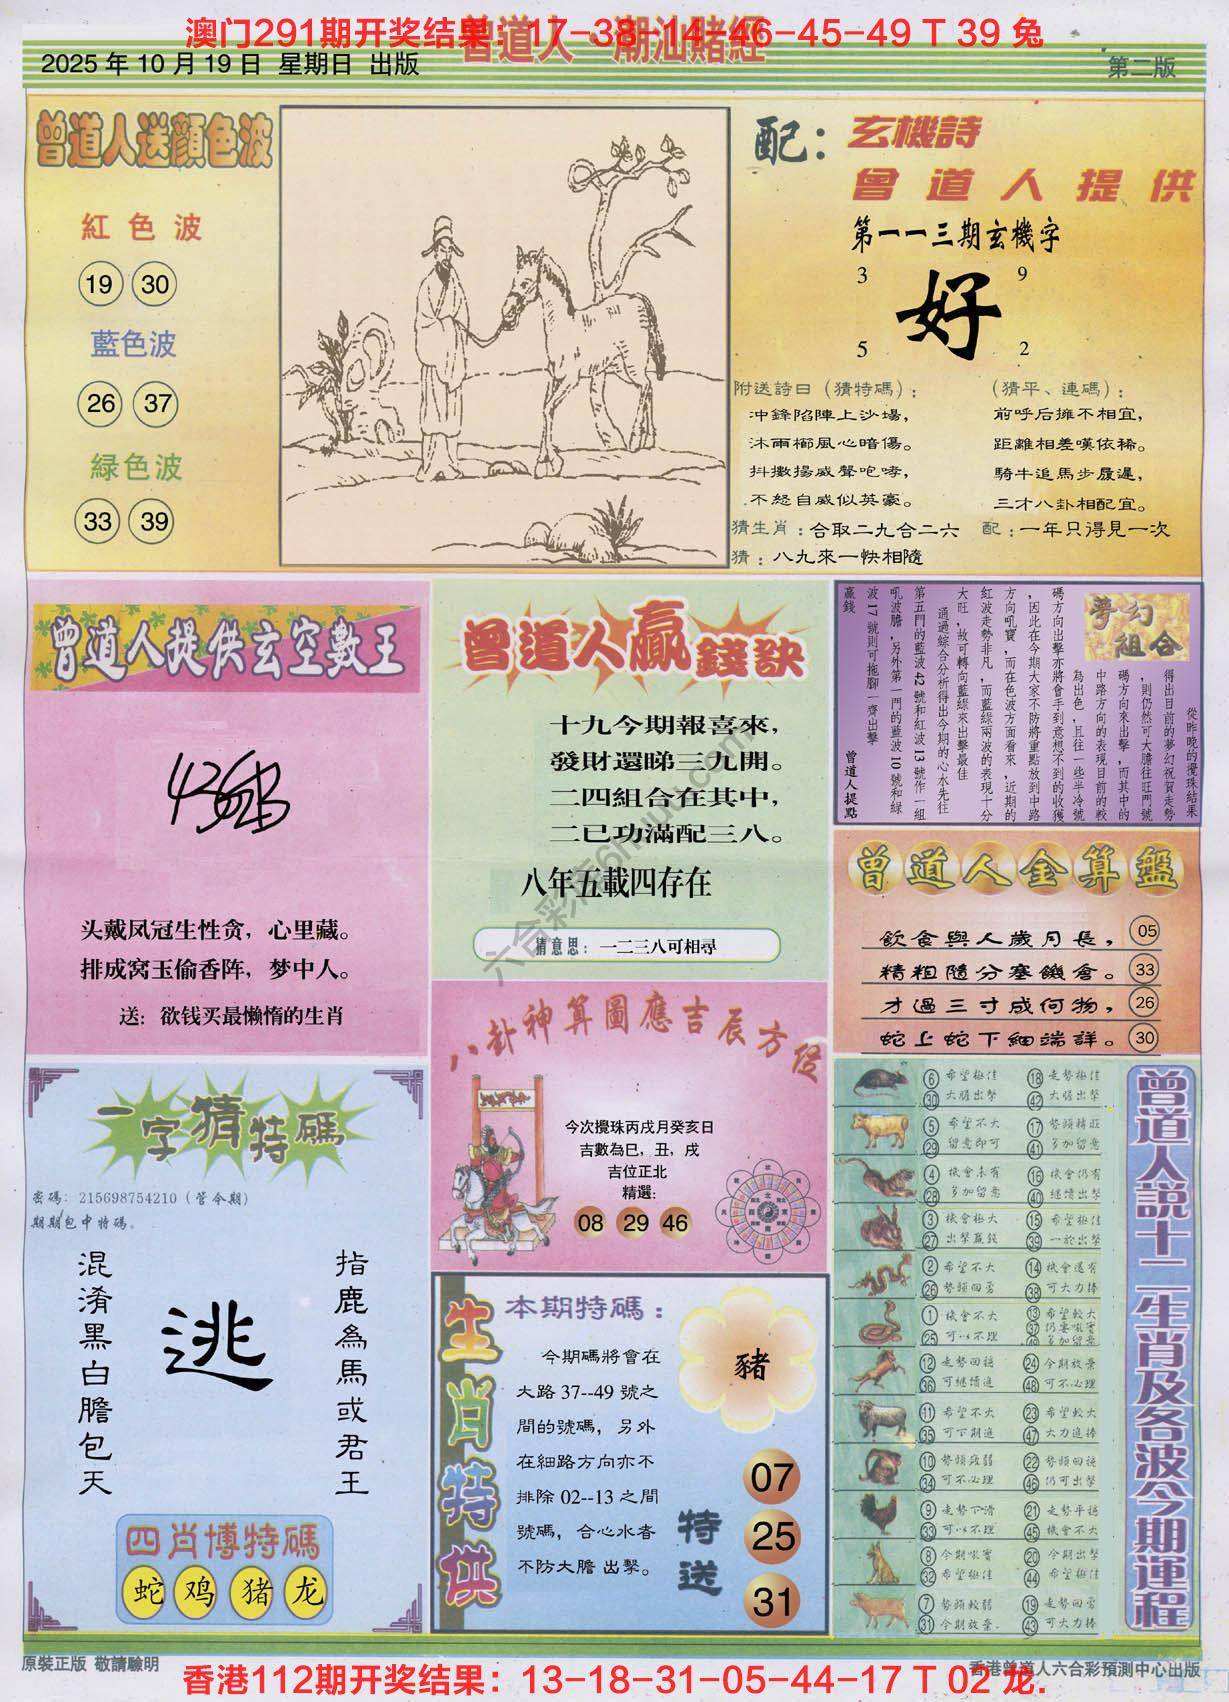 澳门291期开奖结果：17-38-14-46-45-49 T 39 兔
曾道人 潮汕賭經
2025 年 10 月 19 日 星期日 出版
第二版
曾道人送顏色波
紅色波
19 30
藍色波
26 37
緑色波
33 39
配：玄機詩
曾道人提供
第一一三期玄機字
3 9
好
5 2
附送詩曰（猜特碼）：
冲鋒陷陣上沙場，
沐雨櫛風心暗傷。
抖擻揚威聲咆哮，
不怒自威似英豪。
（猜平、連碼）：
前呼后擁不相宜，
距離相差嘆依稀。
騎牛追馬步履遲，
三才八卦相配宜。
猜生肖：合取二九合二六
配：一年只得見一次
猜：八九來一快相隨
曾道人提供玄空數王
头戴凤冠生性贪，心里藏。
排成窝玉偷香阵，梦中人。
送：欲钱买最懒惰的生肖
曾道人贏錢訣
十九今期報喜來，
發財還睇三九開。
二四組合在其中，
二已功滿配三八。
八年五載四存在
猜意思：一二三八可相尋
夢幻組合
從昨晚的攪珠結果
得出目前的夢幻祝賀走勢
，則仍然可大膽往旺門號
碼方向來出擊，而其中的
中路方向的表現目前的較
為出色，且往一些半冷號
碼方向出擊亦將會手到意想不到的收獲
，因此在今期大家不防將重點放到中路
方向吼寶，而在色波方面看來，近期的
紅波走勢非凡，而藍綠兩波的表現十分
大旺，故可轉向藍綠來出擊最佳
通過綜合分析得出今期的心水先往
第五門的藍波 42 號和紅波 13 號作一組
吼波膽，另外第一門的藍波 10 號和綠
波 17 號則可拖腳一齊出擊
贏錢
曾道人提點
曾道人金算盤
飲食與人歲月長， 05
精粗隨分塞饑倉。 33
才過三寸成何物， 26
蛇上蛇下細湍詳。 30
八卦神算圖應吉辰方位
今次攪珠丙戌月癸亥日
吉數為巳，丑，戌
吉位正北
精選：
08 29 46
一字猜特碼
密碼：215698754210（管令期）
期期包中特碼。
混淆黑白膽包天
逃
指鹿為馬或君王
四肖博特碼
蛇 鸡 猪 龙
生肖特供
本期特碼：
今期碼將會在
大路 37--49 號之
間的號碼，另外
在細路方向亦不
排除 02--13 之間
號碼，合心水者
不防大膽 出擊。
豬
特送
07
25
31
曾道人説十二生肖及各波今期運程
6 希望極佳 18 走勢極佳
30 大膽出擊 42 大膽出擊
5 希望不大 17 勢頭精旺
29 留意即可 41 多加留意
4 機會未有 16 機會仍有
28 多加留意 40 繼續出擊
3 機會極大 15 希望極佳
27 出擊贏錢 39 一於出擊
2 希望不大 14 機會還有
26 勢頭回勇 38 可大力捧
1 機會不大 13 希望較大
25 可以不理 37
49 多加留意
12 走勢回穩 24 今期放棄
36 可繼續追 48 可不必理
11 希望不大 23 希望較大
35 可下期追 47 大力追捧
10 勢頭疲弱 22 勢頭回穩
34 可不必理 46 仍可出擊
9 走勢下滑 21 走勢平穩
33 可以不理 45 機會不大
8 今期吼實 20 今期出擊
32 希望極佳 44 希望極佳
7 勢頭較弱 19 走勢回勇
31 今期放棄. 43 可大力捧
六合彩庫6hku.com
原裝正版 敬請驗明
香港曾道人六合彩預測中心出版
香港112期开奖结果：13-18-31-05-44-17 T 02 龙.